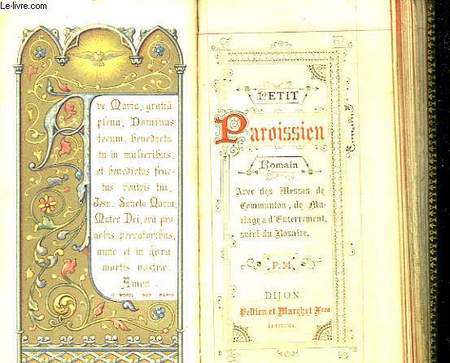 Le-livre.com
Ave Maria, gratiâ
plena; Dominus
tecum, benedicta
tu in mulieribus,
et benedictus fruc
tus ventris tui,
Jesu. Sancta Maria,
Mater Dei, ora pro
nobis peccatoribus,
nunc et in hora
mortis nostræ.
Amen.
PETIT
Paroissien
Romain
Avec des Messes de
Communion, de Ma-
riage & d'Enterrement,
suivi du Rosaire.
P.M.
DIJON
Pellion et Marchet Fres